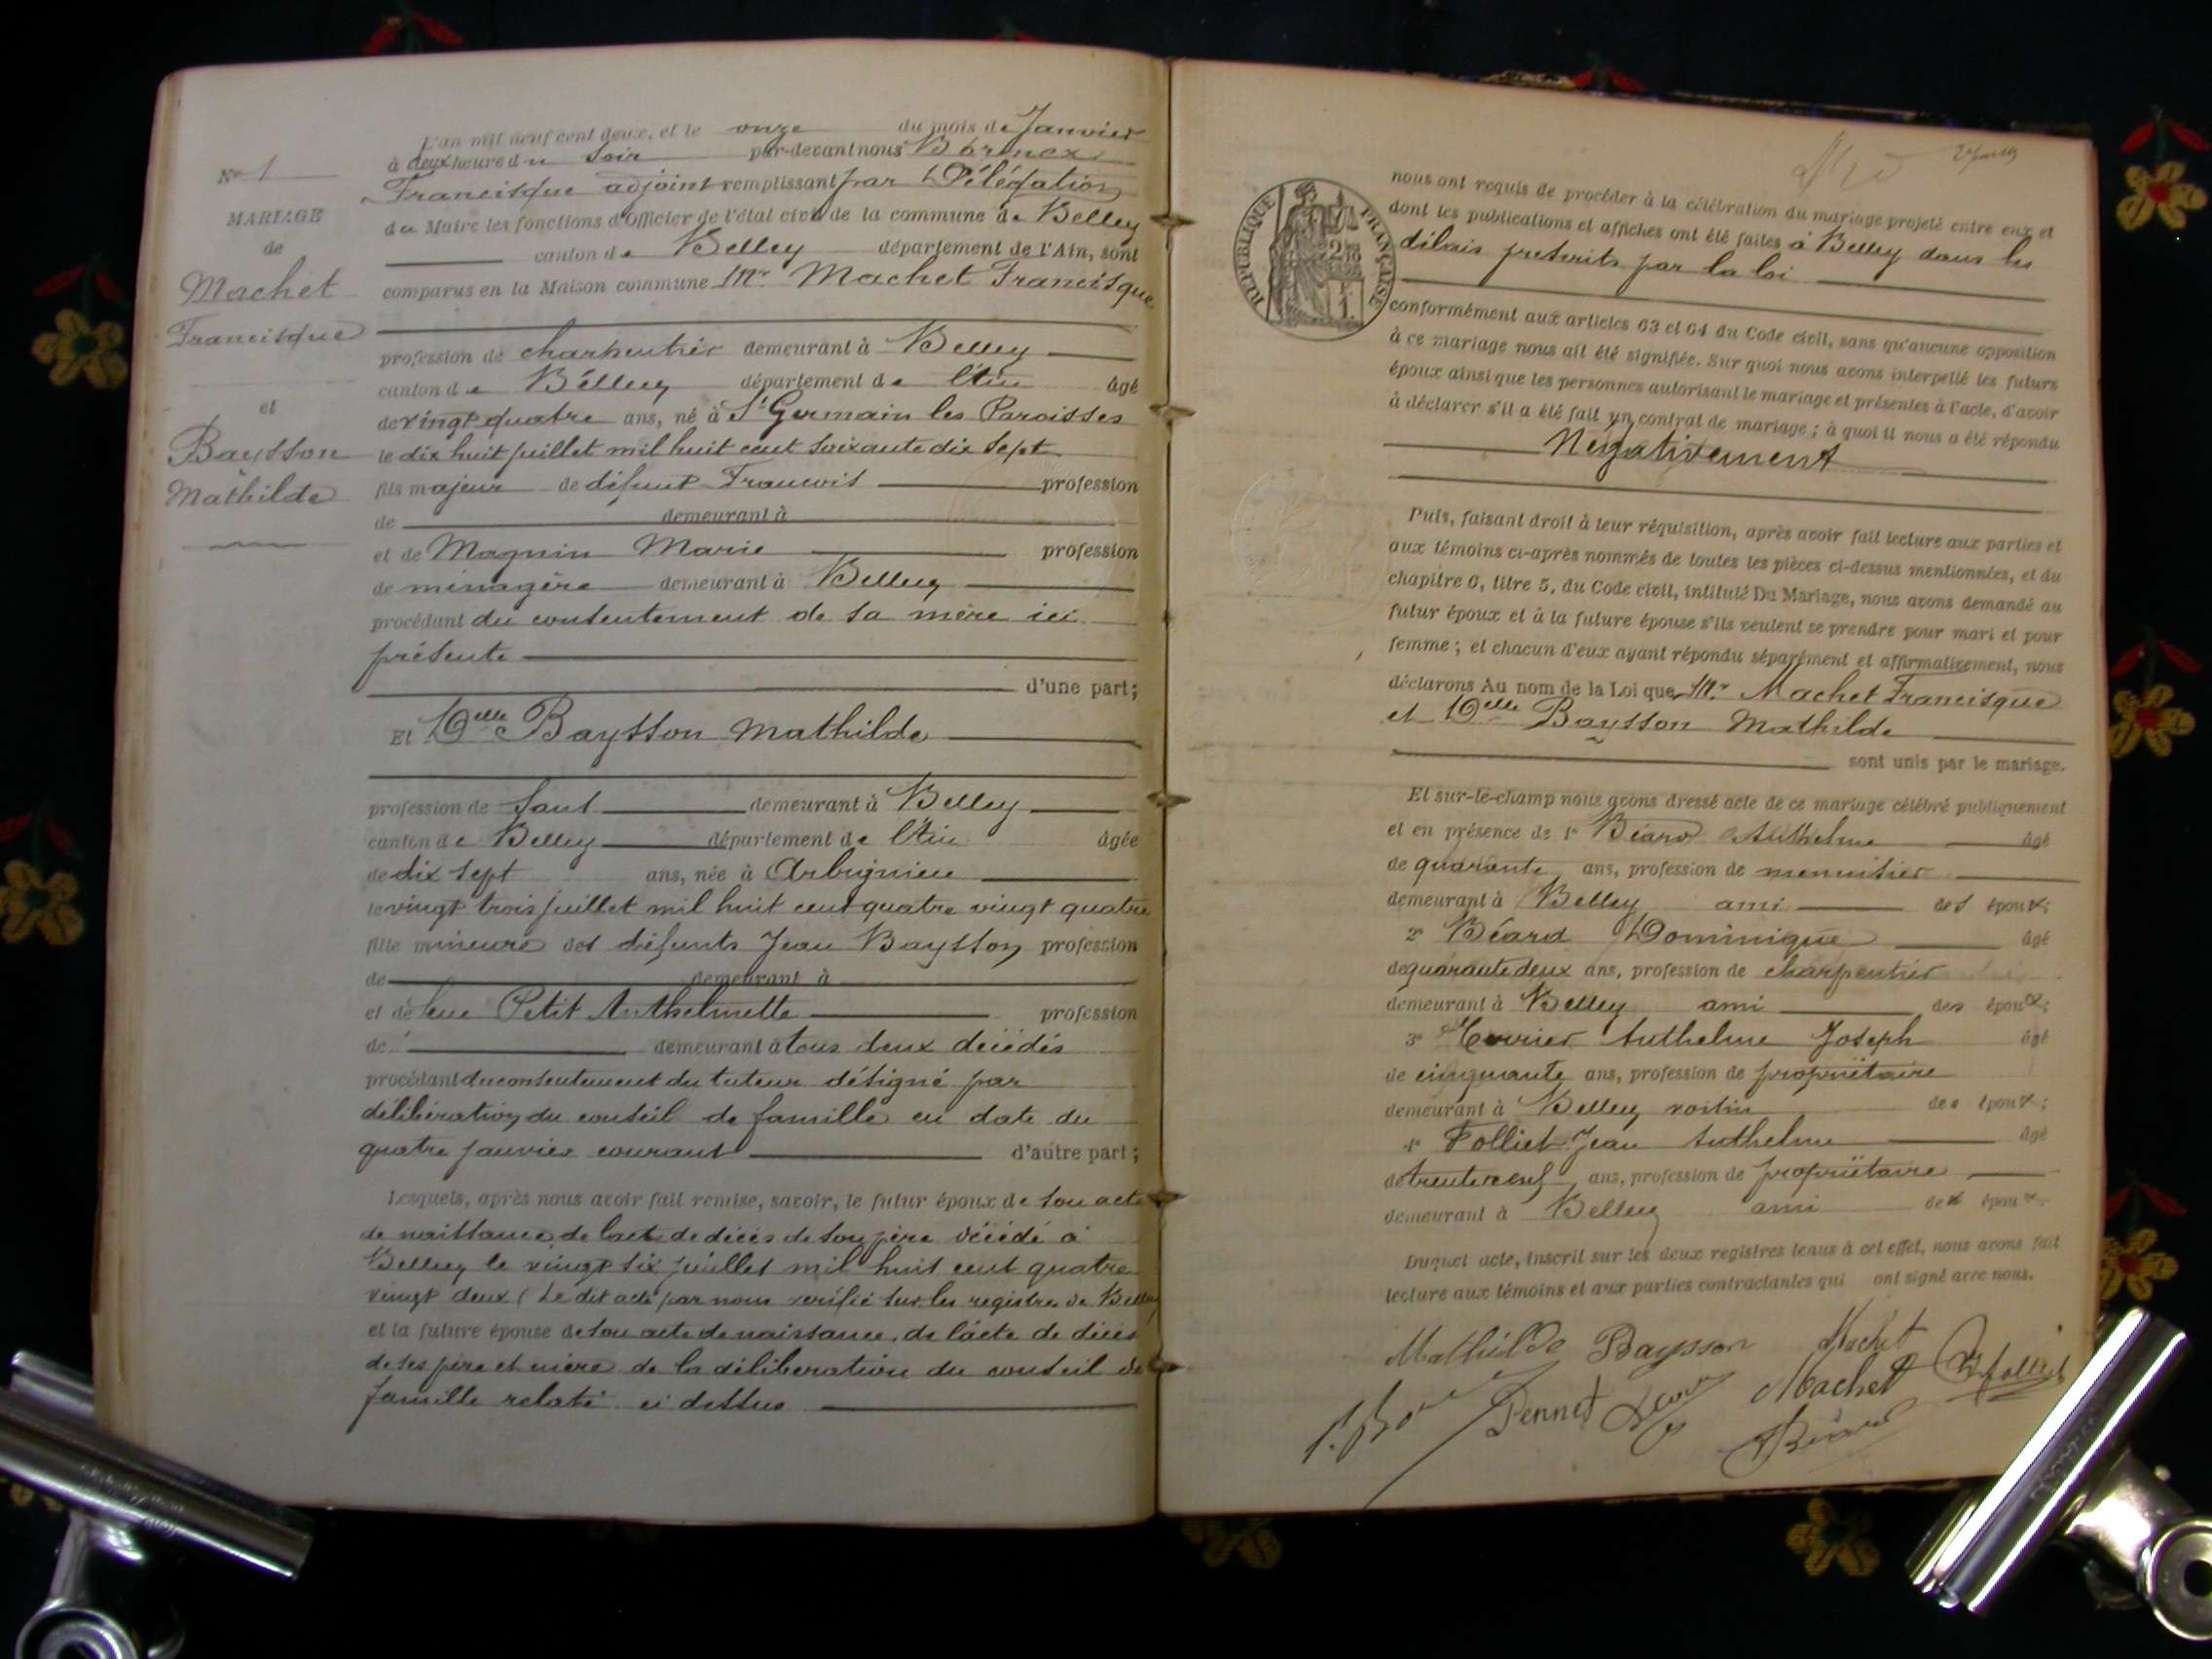 L'an mil neuf cent deux, et le onze du mois de Janvier
à deux heure du Soir par-devant nous
Francisque adjoint remplissant par Délégation
du Maire les fonctions d'Officier de l'état civil de la commune de Belley
canton de Belley département de l'Ain, sont
comparus en la Maison commune Mr. Machet Francisque
profession de charpentier demeurant à Belley
canton de Belley département de l'Ain âgé
de vingt quatre ans, né à St Germain les Paroisses
le dix huit juillet mil huit cent soixante dix sept
fils majeur de défunt Francois profession
de demeurant à
et de Magnin Marie profession
de ménagère demeurant à Belley
procédant du consentement de sa mère ici
présente
d'une part;
Et Delle Baysson Mathilde
profession de sans demeurant à Belley
canton de Belley département de l'Ain âgée
de dix sept ans, née à Arbignieu
le vingt trois juillet mil huit cent quatre vingt quatre
fille mineure des défunts Jean Baysson profession
de demeurant à
et de feue Petit Anthelmette profession
de demeurant à tous deux décédés
procédant du consentement du tuteur désigné par
délibération du conseil de famille en date du
quatre janvier courant d'autre part;
Lesquels, après nous avoir fait remise, savoir, le futur époux de son acte
de naissance, de l'acte de décès de son père décédé à
Belley le vingt six juillet mil huit cent quatre
vingt deux (Le dit acte par nous vérifié sur les registres de Belley
et la future épouse de son acte de naissance, de l'acte de décès
de ses père et mère de la délibération du conseil de
famille relaté ci dessus
No 1
MARIAGE
de
Machet
Francisque
et
Baysson
Mathilde
RÉPUBLIQUE FRANÇAISE
nous ont requis de procéder à la célébration du mariage projeté entre eux et
dont les publications et affiches ont été faites à Belley dans les
délais prescrits par la loi
conformément aux articles 63 et 64 du Code civil, sans qu'aucune opposition
à ce mariage nous ait été signifiée. Sur quoi nous avons interpellé les futurs
époux ainsi que les personnes autorisant le mariage et présentes à l'acte, d'avoir
à déclarer s'il a été fait un contrat de mariage; à quoi il nous a été répondu
Négativement
Puis, faisant droit à leur réquisition, après avoir fait lecture aux parties et
aux témoins ci-après nommés de toutes les pièces ci-dessus mentionnées, et du
chapitre 6, titre 5, du Code civil, intitulé Du Mariage, nous avons demandé au
futur époux et à la future épouse s'ils veulent se prendre pour mari et pour
femme; et chacun d'eux ayant répondu séparément et affirmativement, nous
déclarons Au nom de la Loi que Mr. Machet Francisque
et Delle Baysson Mathilde
sont unis par le mariage.
Et sur-le-champ nous avons dressé acte de ce mariage célébré publiquement
et en présence de 1° Béard Anthelme âgé
de quarante ans, profession de menuisier
demeurant à Belley ami des époux;
2° Béard Dominique âgé
de quarante deux ans, profession de charpentier
demeurant à Belley ami des époux;
3° Anthelme Joseph âgé
de cinquante ans, profession de propriétaire
demeurant à Belley voisin des époux;
4° Folliet Jean Anthelme âgé
de trente neuf ans, profession de propriétaire
demeurant à Belley ami des époux.
Duquel acte, inscrit sur les deux registres tenus à cet effet, nous avons fait
lecture aux témoins et aux parties contractantes qui ont signé avec nous.
Mathilde Baysson Machet
Pennet Machet Folliet
Béard